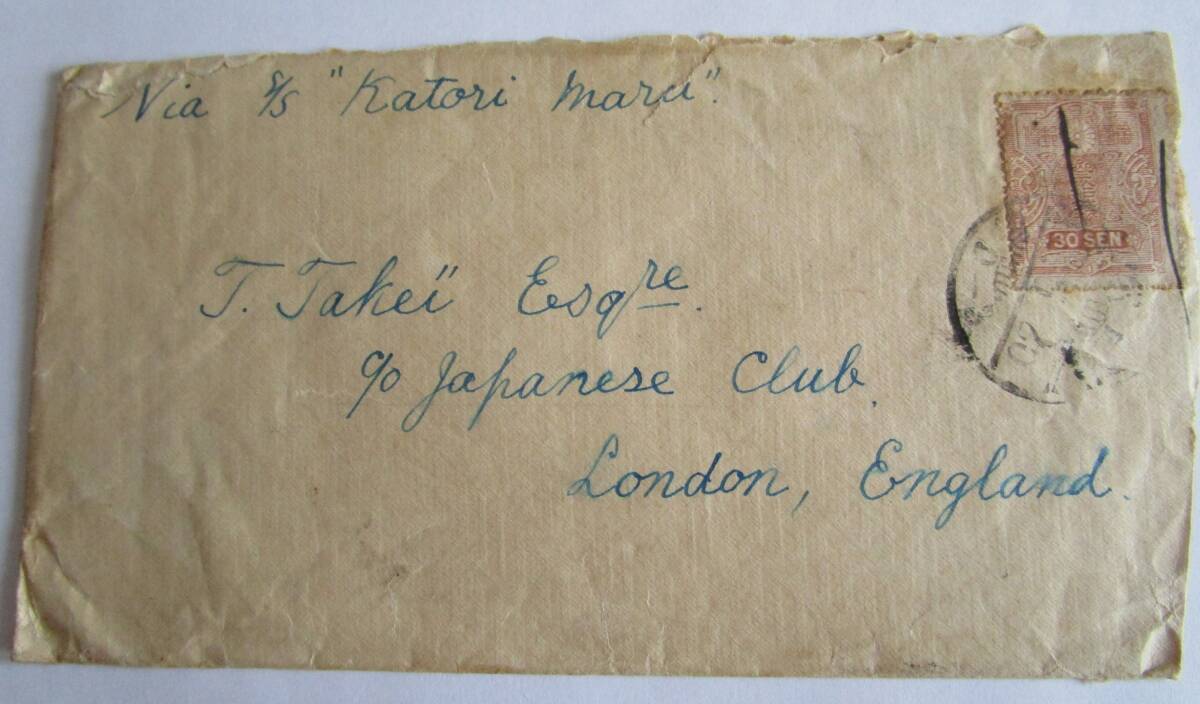 Via S/S "Katori Maru".
30 SEN
T. Takeï Esqre.
c/o Japanese Club.
London, England.